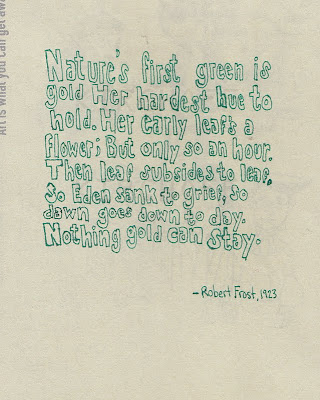 Nature's first green is
gold Her hardest hue to
hold. Her early leaf's a
flower; But only so an hour.
Then leaf subsides to leaf.
So Eden sank to grief, so
dawn goes down to day.
Nothing gold can stay.
– Robert Frost, 1923
Art is what you can get awa